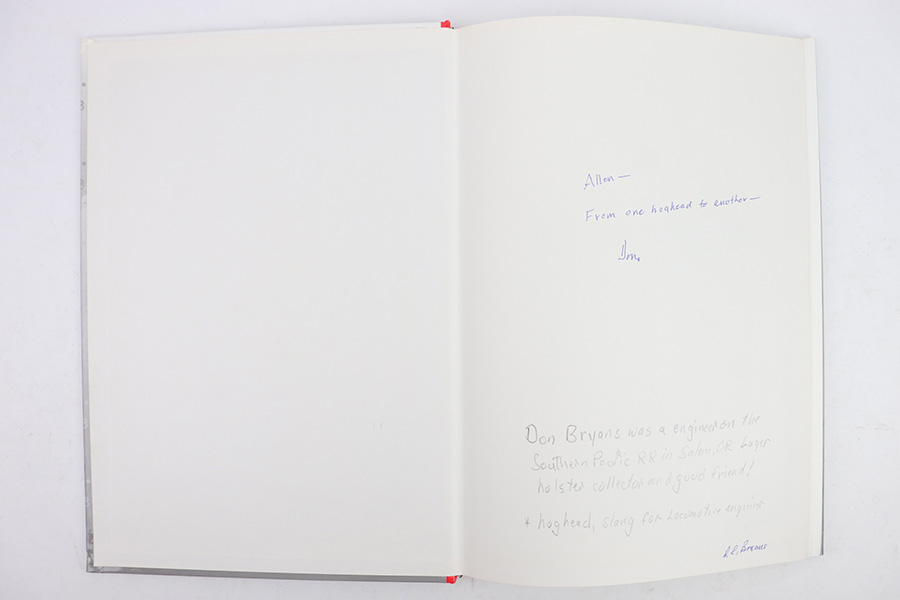 Allen —
From one hoghead to another —
Don
Don Bryans was a engineer on the
Southern Pacific RR in Salem, OR Luger
holster collector and good friend!
* hoghead, slang for Locomotive engineer